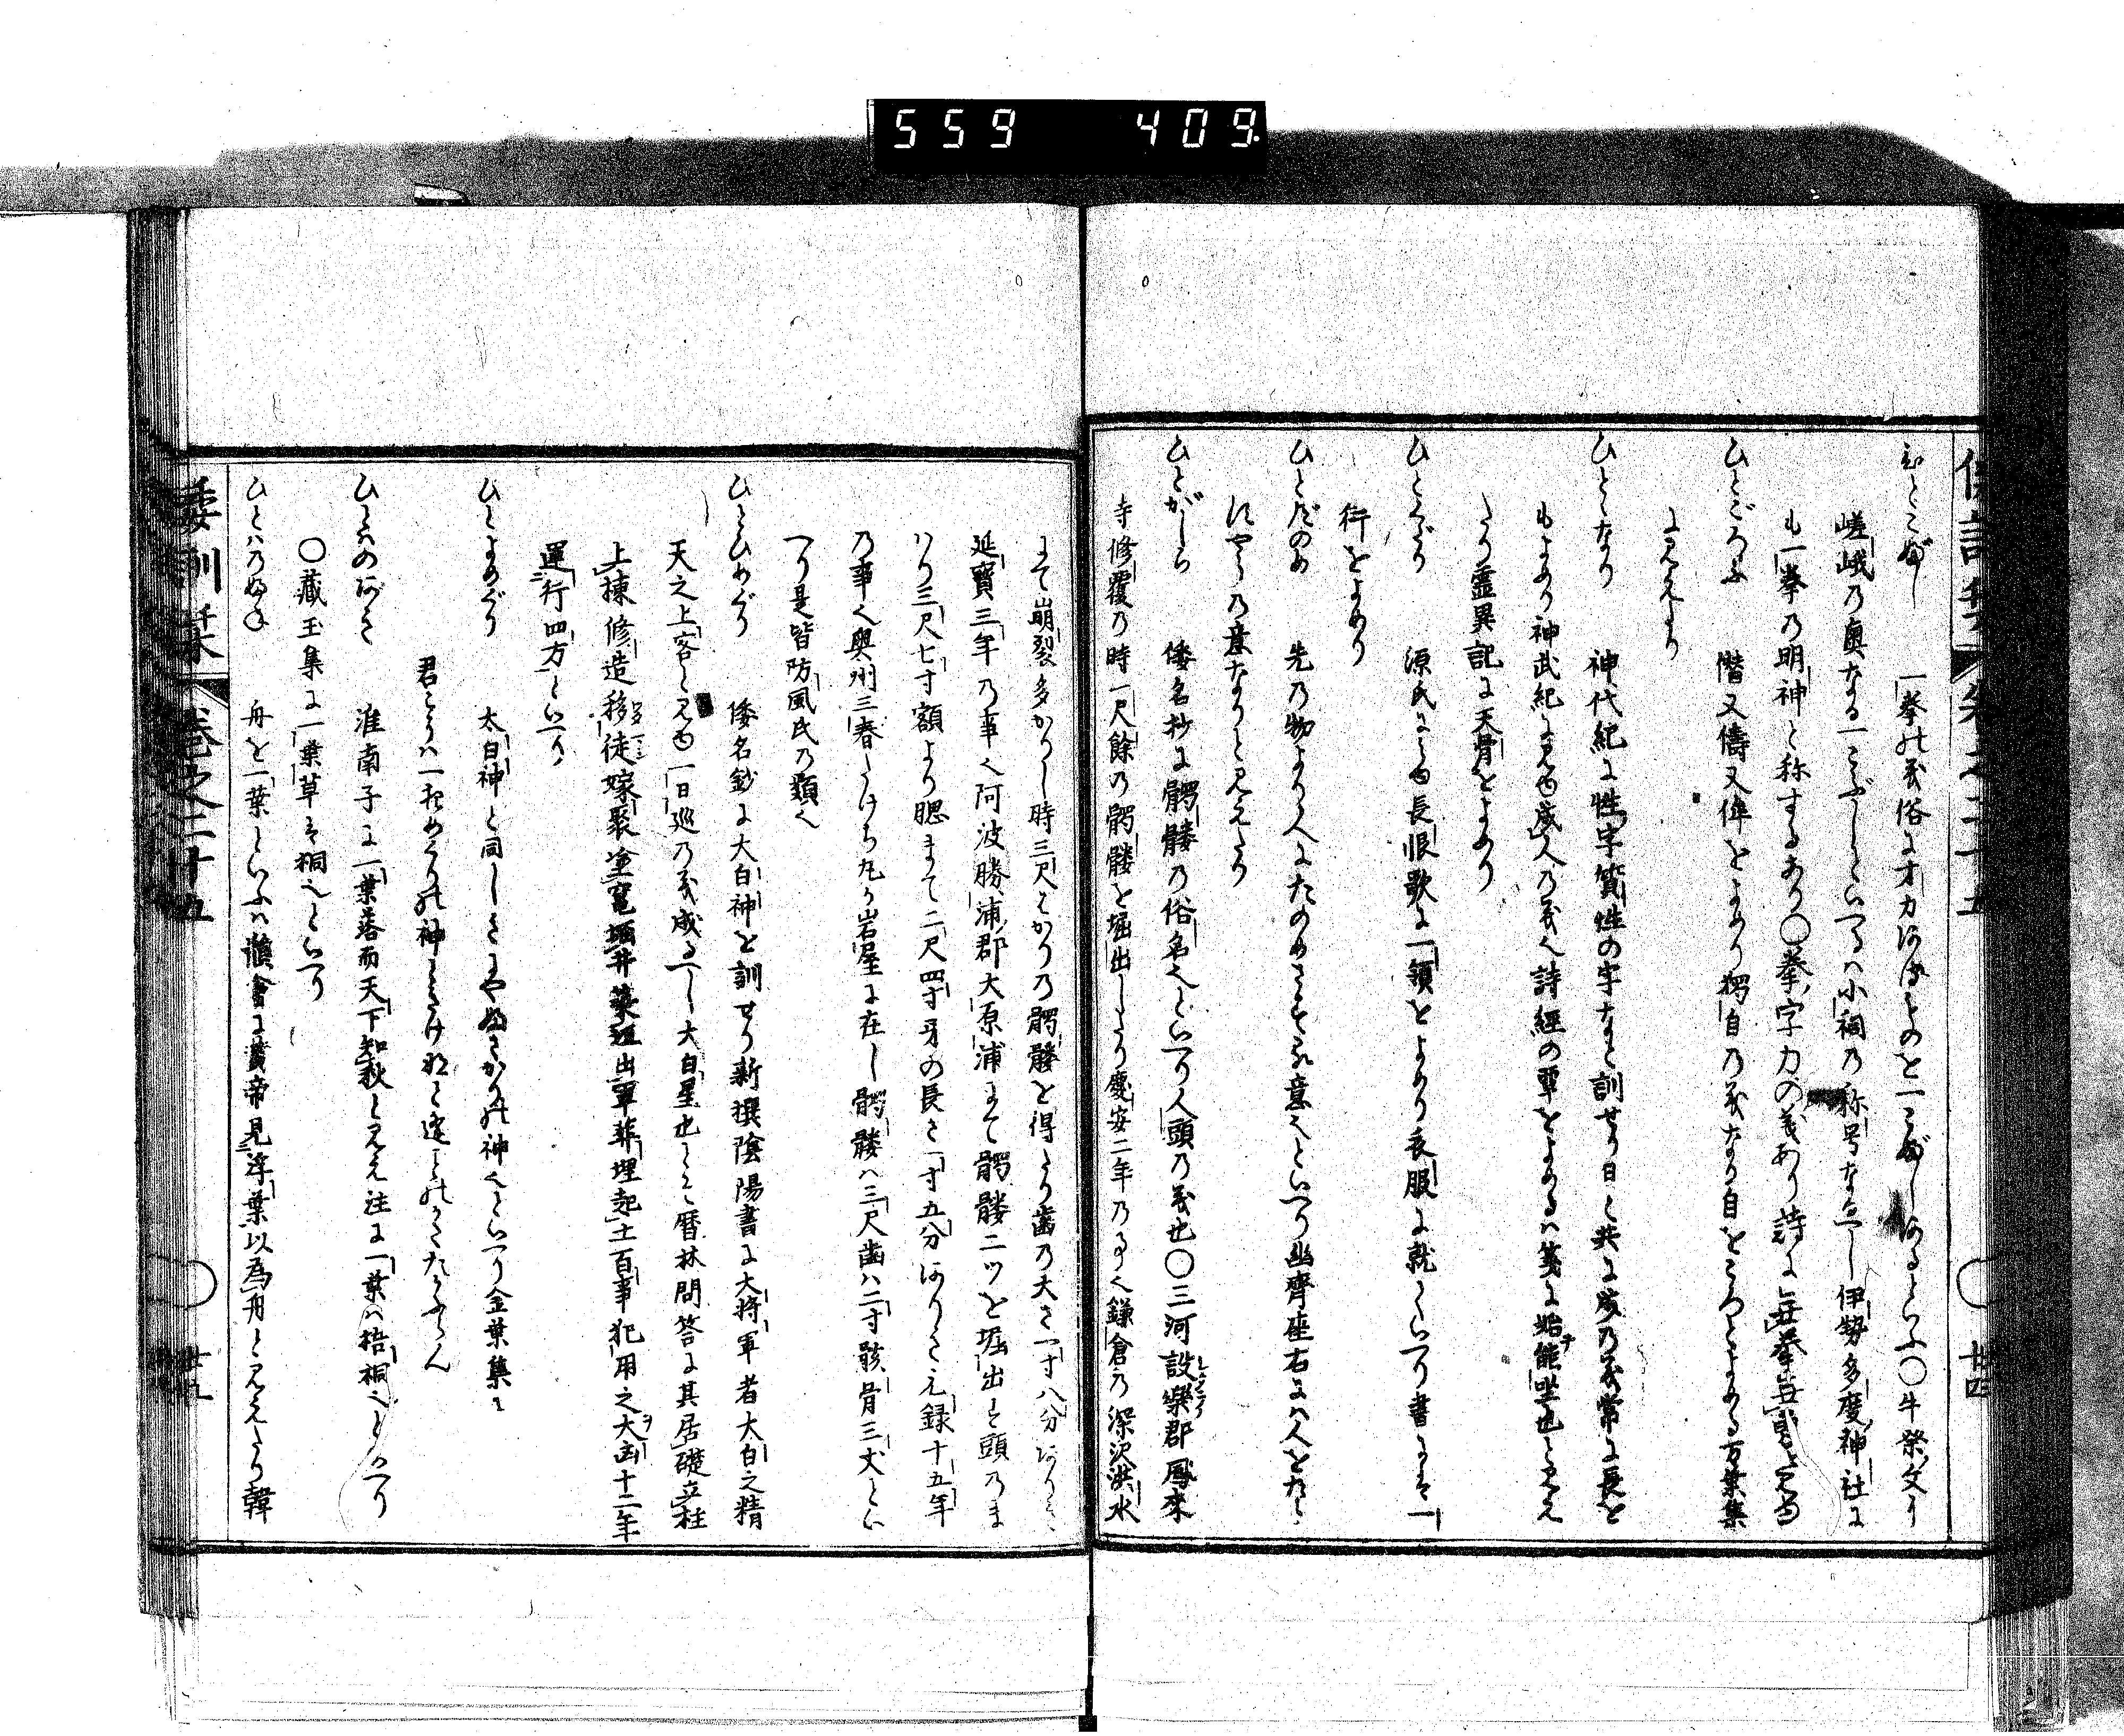 559 409
ひとこぶし 一拳の義俗に才力およばさるのを一こぶしあるといふ〇牛祭文に
嵯峨乃奥なる一こぶしといへるハ小祠乃称号なるへし伊勢多度神社に
も一拳乃明神と称するあり〇拳字力の義あり詩に無拳無勇と見ゆ
ひとごろふ 僭又儔又偉をよめり獨自乃義なり自をころとよめる万葉集
に見えたり
ひとゝなり 神代紀に性字質性の字なと訓せり日と共に成乃義常に長を
もよめり神武紀に見ゆ成人乃義也詩經の覃をよめるハ箋に始能坐也と見え
たり霊異記に天骨をよめり
ひとくだり 源氏に見ゆ長恨歌に一領をよめり衣服に就ていへり書にハ一
行をよめり
ひとだのめ 先乃物より人にたのめさする意也といへり幽齊座右にハ人をたら
にやう乃意なりと見えたり
ひとがしら 倭名抄に髑髏の俗名也といへり人頭乃義也〇三河設樂郡鳳来
寺修覆乃時一尺餘の髑髏を堀出したり慶安二年乃事也鎌倉乃深沢洪水
にて崩裂多かりし時三尺はかり乃髑髏を得たり歯乃大さ一寸八分ありき
延寶三年乃事也阿波勝浦郡大原浦にて髑髏二ツを堀出す頭乃ま
ハり三尺七寸額より腮まて二尺四寸牙の長さ一寸五分ありきと元録十五年
乃事也奥州三春たけち丸か岩屋に在し髑髏ハ三尺歯ハ二寸骸骨三丈とい
へり是皆防風氏乃類也
ひとひめぐり 倭名鈔に大白神を訓せり新撰陰陽書に大将軍者大白之精
天之上客と見ゆ一日巡乃義成るへし大白星也とそ暦林問答に其居礎立柱
上棟修造移徒嫁娶塗竈堀井築垣出軍葬埋起土百事犯用之大凶十二年
運行四方といへり
ひとよめぐり 太白神と同しきにやぬさかりの神也といへり金葉集に
君こそハ一夜めくりの神ときけ何とて逢ことのかたたかふらん
ひとはのあき 淮南子に一葉落而天下知秋と見え注に一葉ハ梧桐也といへり
〇藏玉集に一葉草を桐也といへり
ひとハ乃ふね 舟を一葉といふハ韻會に黄帝見浮葉以為舟と見えたり韓
倭訓栞 巻之二十五